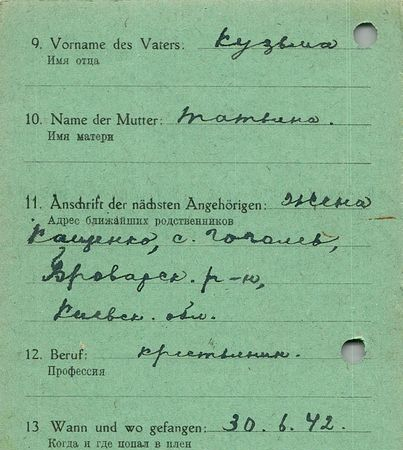 9. Vorname des Vaters: Кузьма
Имя отца
10. Name der Mutter: Татьяна.
Имя матери
11. Anschrift der nächsten Angehörigen: Жена
Адрес ближайших родственников
Кащенко, с. Гоголев,
Броварск. р-н,
Киевск. обл.
12. Beruf: крестьянин.
Профессия
13 Wann und wo gefangen: 30.6.42.
Когда и где попал в плен